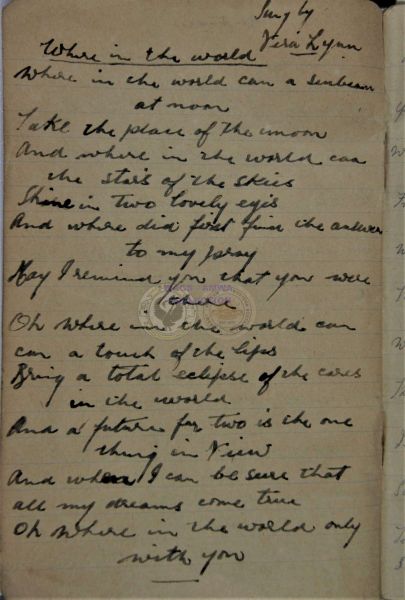 Sung by
Vera Lynn
Where in the world
Where in the world can a sunbeam
at noon
Take the place of the moon
And where in the world can
the stars of the skies
Shine in two lovely eyes
And where did I first find the answer
to my pray
May I remind you that you were
there
Oh where in the world can
can a touch of the lips
Bring a total eclipse of the cares
in the world
And a future for two is the one
thing in View
And when I can be sure that
all my dreams come true
Oh where in the world only
with you